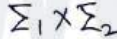 Σ₁ × Σ₂